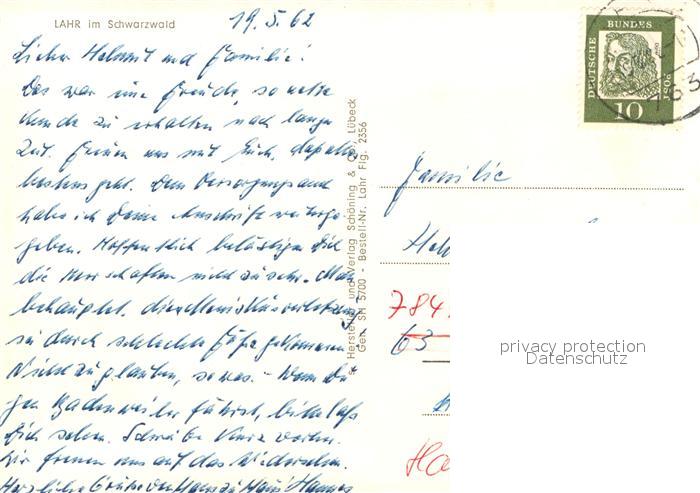 LAHR im Schwarzwald
19.5.62
Lieber Helmut und Familie!
Das war eine Freude, so nette
Kunde zu erhalten nach langer
Zeit. Freuen uns mit Euch, daß alles
bestens geht. Dem Versorgungsamt
habe ich Deine Anschrift weiterge-
geben. Hoffentlich belästigen Dich
die Herrschaften nicht zu sehr. Man
behauptet, die Meniskusverletzung
sei durch schlechte Füße gekommen.
Nicht zu glauben, so was. - Wenn Du
gen Badenweiler fährst, bitte laß
Dich sehen. Schreibe kurz vorher.
Wir freuen uns auf das Wiedersehen.
Herzliche Grüße von Haus zu Haus Hannes
Herstellung und Verlag Schöning & Co., Lübeck
Gen. SH 5700 - Bestell-Nr. Lahr Flg. 2356
DEUTSCHE BUNDESPOST
10
763
Familie
Hel
784
63
Ha
privacy protection
Datenschutz